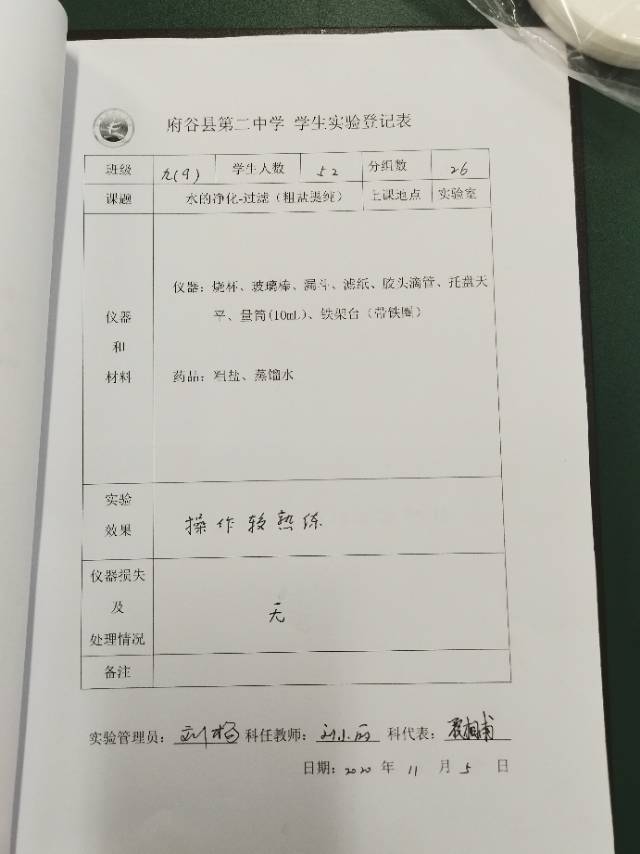 府谷县第二中学 学生实验登记表
班级 九(9) 学生人数 52 分组数 26
课题 水的净化-过滤（粗盐提纯） 上课地点 实验室
仪器：烧杯、玻璃棒、漏斗、滤纸、胶头滴管、托盘天
平、量筒(10mL)、铁架台（带铁圈）
仪器
和
材料
药品：粗盐、蒸馏水
实验
效果
操作较熟练
仪器损失
及
处理情况
无
备注
实验管理员：刘杨 科任教师：刘小丽 科代表：
日期：2020 年 11 月 5 日